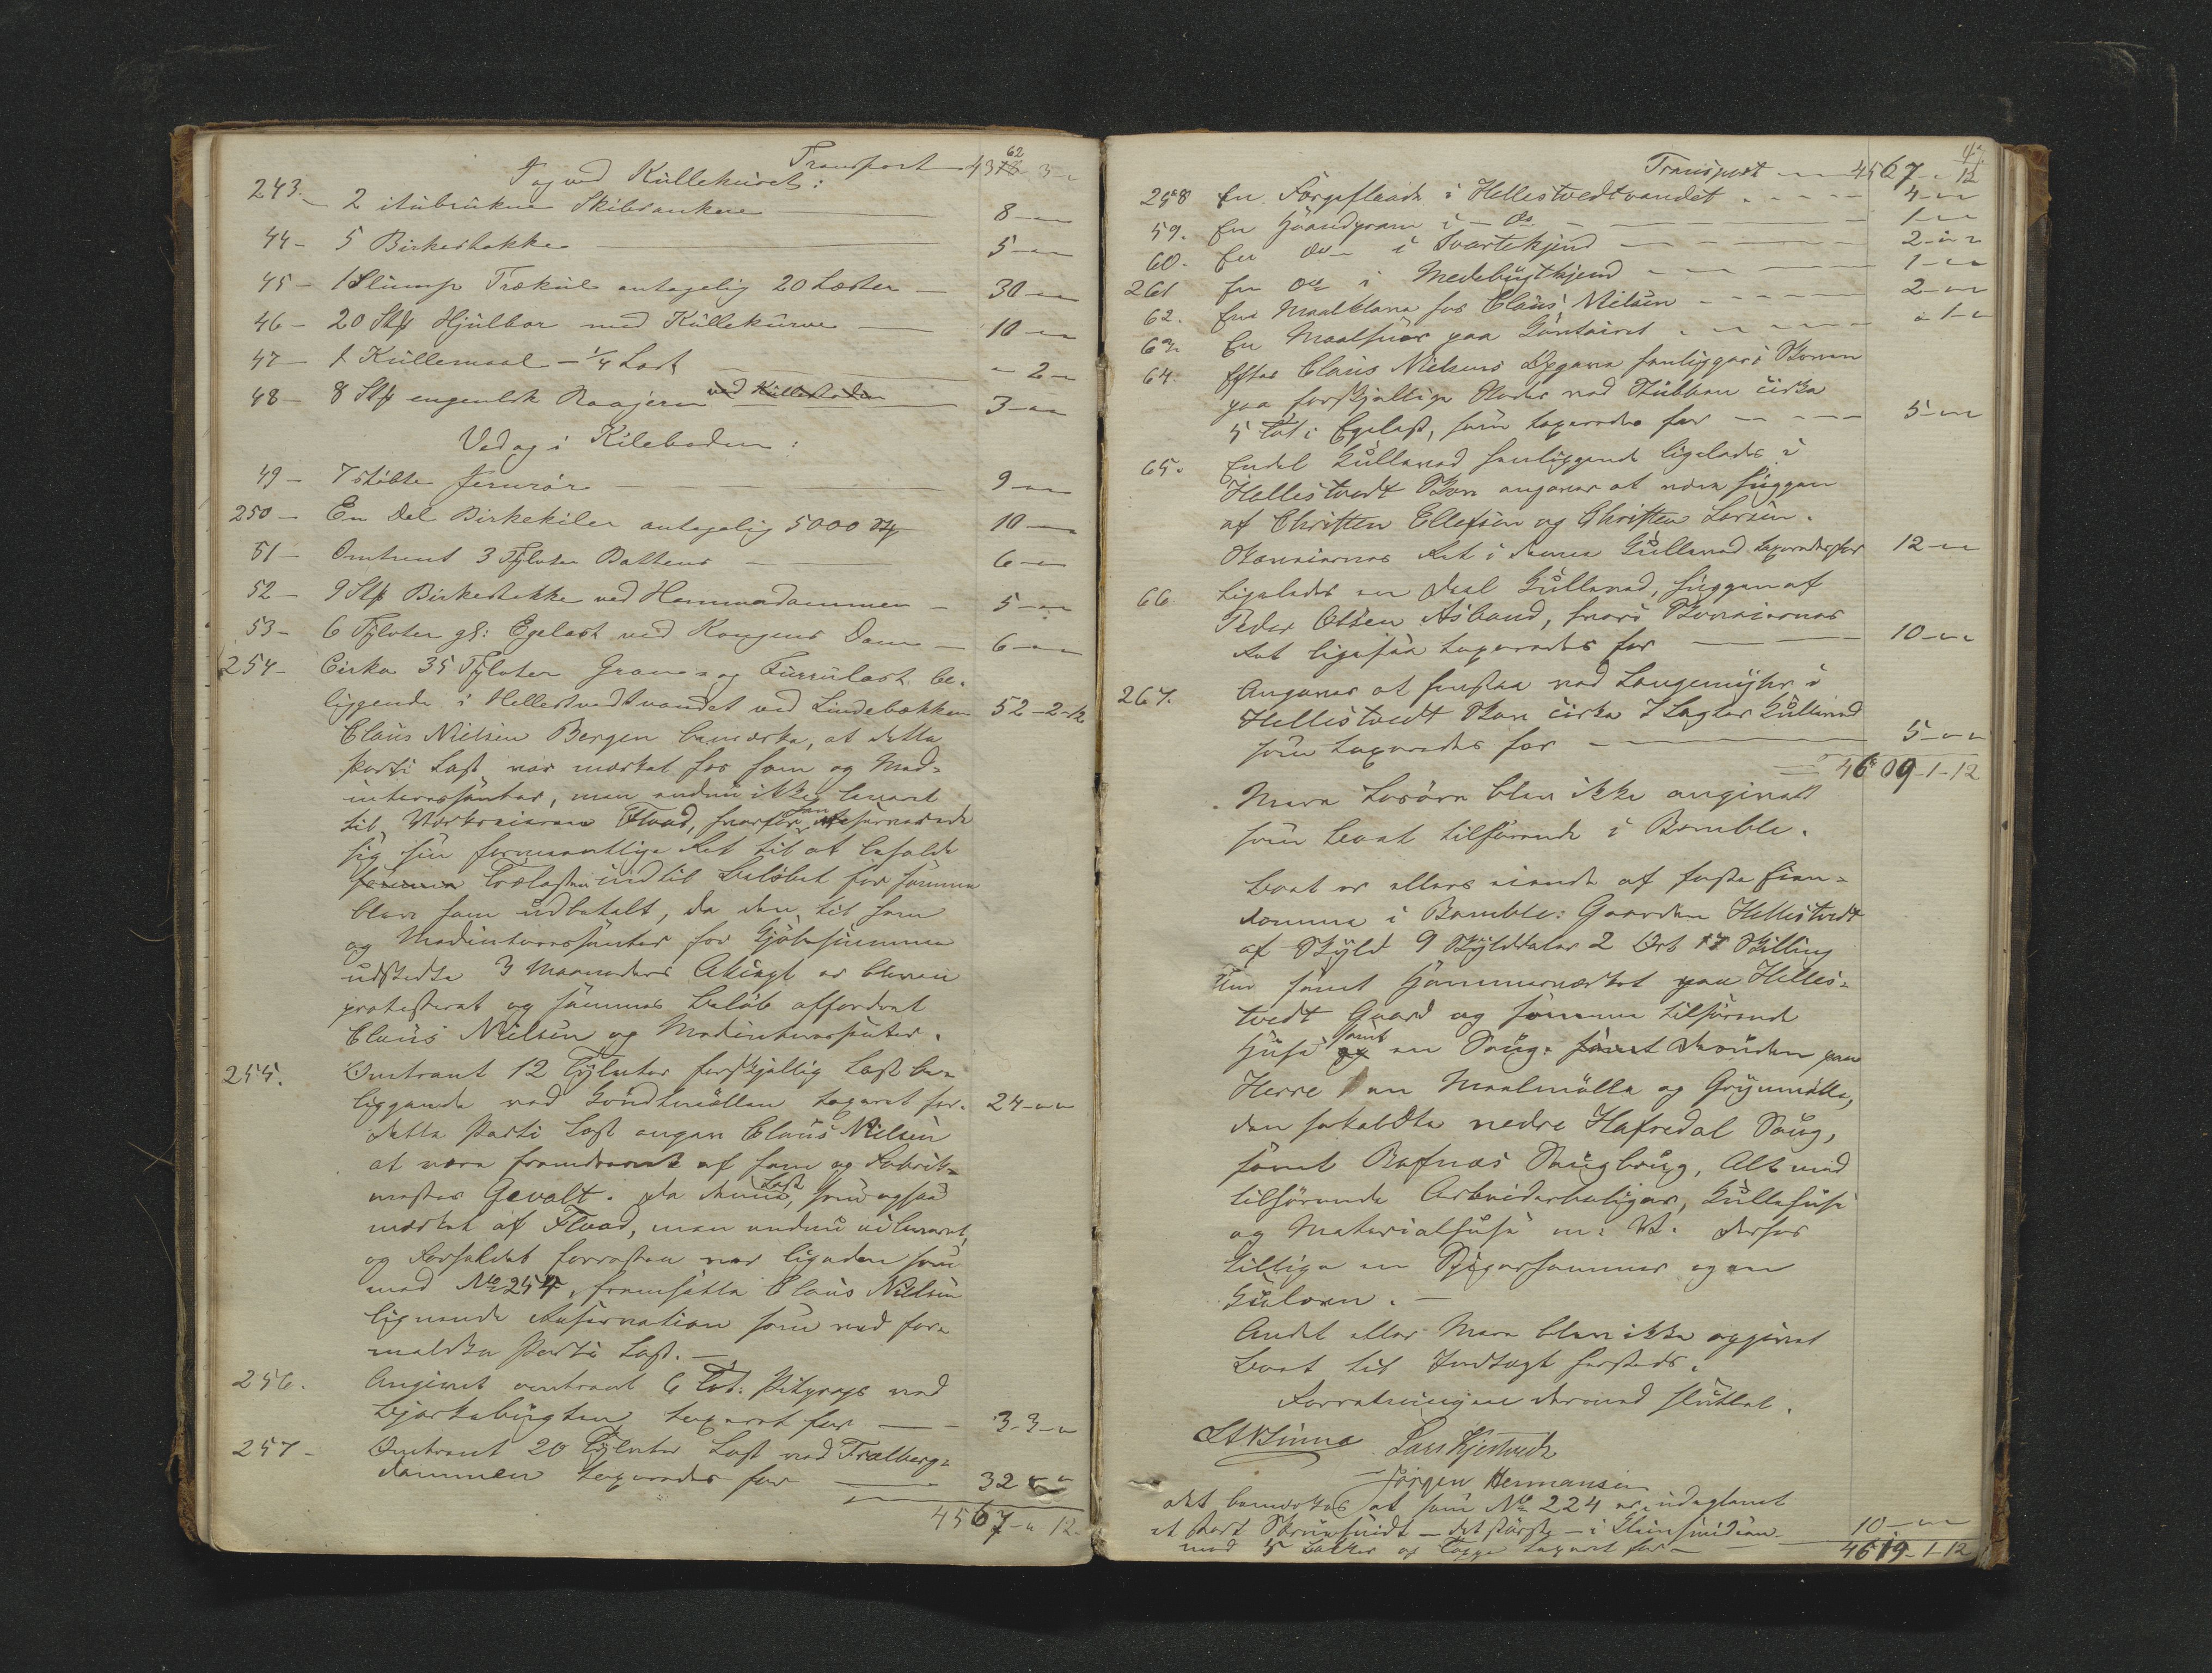 Transport 4362 3 - "
I og ved Kullehuset:
243. - 2 itubrukne Skibsankere 8 - " - "
44 - 5 Birkestokke 5 - " - "
45 - 1 Slump Trækul antagelig 20 Læster - 30 - " - "
46 - 20 Stk Hjulbør med Kullekurve 10 - " - "
47 - 1 Kullemaal - 1/4 Læst " - 2 - "
48 - 8 Stk engelsk Raajern ved Kulleboden 3 - " - "
Ved og i Kileboden:
49 - 7 støbte Jernrør 9 - " - "
250 - En Del Birkekiler antagelig 5000 Stk 10 - " - "
51 - Omtrent 3 Tylvter Battens 6 - " - "
52 - 9 Stk Birkestokke ved Hammerdammen - 5 - " - "
53 - 6 Tylvter gl: Egelast ved Kongens Dam - 6 - " - "
254 - Cirka 35 Tylvter Gran- og Furrulast be-
liggende i Hellestvedtvandet ved Lindebækken 52 - 2 - 12
Claus Nielsen Bergen bemærke, at dette
Parti Last var mærket for ham og Med-
interessenter, men endnu ikke leveret
til Værkseieren Flood, hvorfor han reserverede
sig sin formentlige Ret til at beholde
Trælasten indtil Beløbet for samme
blev ham udbetalt, da den til ham
og Medinteressenter for Kjøbesummen
udstedte 3 Maaneders Accept er bleven
protesteret og sammes Beløb affordret
Claus Nielsen og Medinteressenter.
255. Omtrent 12 Tylvter forskjellig Last be-
liggende ved Sundmøllen taxeret for. 24 - " - "
Dette Parti Last angav Claus Nielsen
at være fremdrevet af ham og Fabrik-
mester Gevalt. Da denne Last, som ogsaa
mærket af Flood, men endnu uleveret,
og Forholdet forresten var ligedan som
med No 254, fremsatte Claus Nielsen
lignende Reservation som ved for-
meldte Parti Last. -
256. Angivet omtrent 6 Tvt: Pitprops ved
Bjerkebugten taxeret for 3 - 3 - "
257 - Omtrent 20 Tylvter Last ved Trælberg-
dammen taxeredes for 32 " "
4567 - " 12.
47.
Transport 4567 - " 12
258 En Færgeflaade i Hellestvedtvandet 4 - " - "
59. En Haandpram i - do 1 - " - "
60. En do i Svartekjend 2 - " - "
261 En do i Medebugtkjend 1 - " - "
62. En Maalklave hos Claus Nielsen 2 - " - "
63. En Maalsnor paa Contoiret " - 1 - "
64. Efter Claus Nielsens Opgave henligger i Skoven
paa forskjellige Steder ved Stubben cirka
5 Tvt: Egelast, som taxeredes for 5 - " - "
65. Endel Kulleved henliggende ligeledes i
Hellestvedt Skov angives at være huggen
af Christen Ellefsen og Christen Larsen.
Skoveiernes Ret i denne Kulleved taxeredes for 12 - " - "
66 Ligeledes en Deel Kulleved, huggen af
Peder Olsen Asbond, hvori Skoveiernes
Ret ligesaa taxeredes for 10 - " - "
267. Angives at henstaa ved Langemyhr i
Hellestvedt Skov cirka 7 Lagter Kulleved
som taxeredes for 5 - " - "
4609 - 1 - 12
Mere Løsøre blev ikke angivet
som Boet tilhørende i Bamble.
Boet er ellers eiende af faste Eien-
domme i Bamble: Gaarden Hellestvedt
af Skyld 9 Skylddaler 2 Ort 17 Skilling
samt Hammerværket paa Helles-
tvedt Gaard og samme tilhørende
Huse samt en Saug. Grunden paa
Herre en Maalmølle og Grynmølle,
den saakaldte nedre Hafredal Saug,
samt Bafnæs Saugbrug, Alt med
tilhørende Arbeiderboliger, Kullehuse
og Materialhuse m: V. Derhos
tillige en Spigerhammer og en
Kulovn. -
Andet eller Mere blev ikke opgivet
Boet til Indtægt hersteds.
Forretningen dermed sluttet.
Lars Kjestvedt
Jørgen Hermansen
Det bemærkes at som No 224 er udeglemt
et stort Skruehuidt - det største - i Kleinsmidien 10 - " - "
med 5 Bakker og Tappe taxeret for - 4619 - 1 - 12